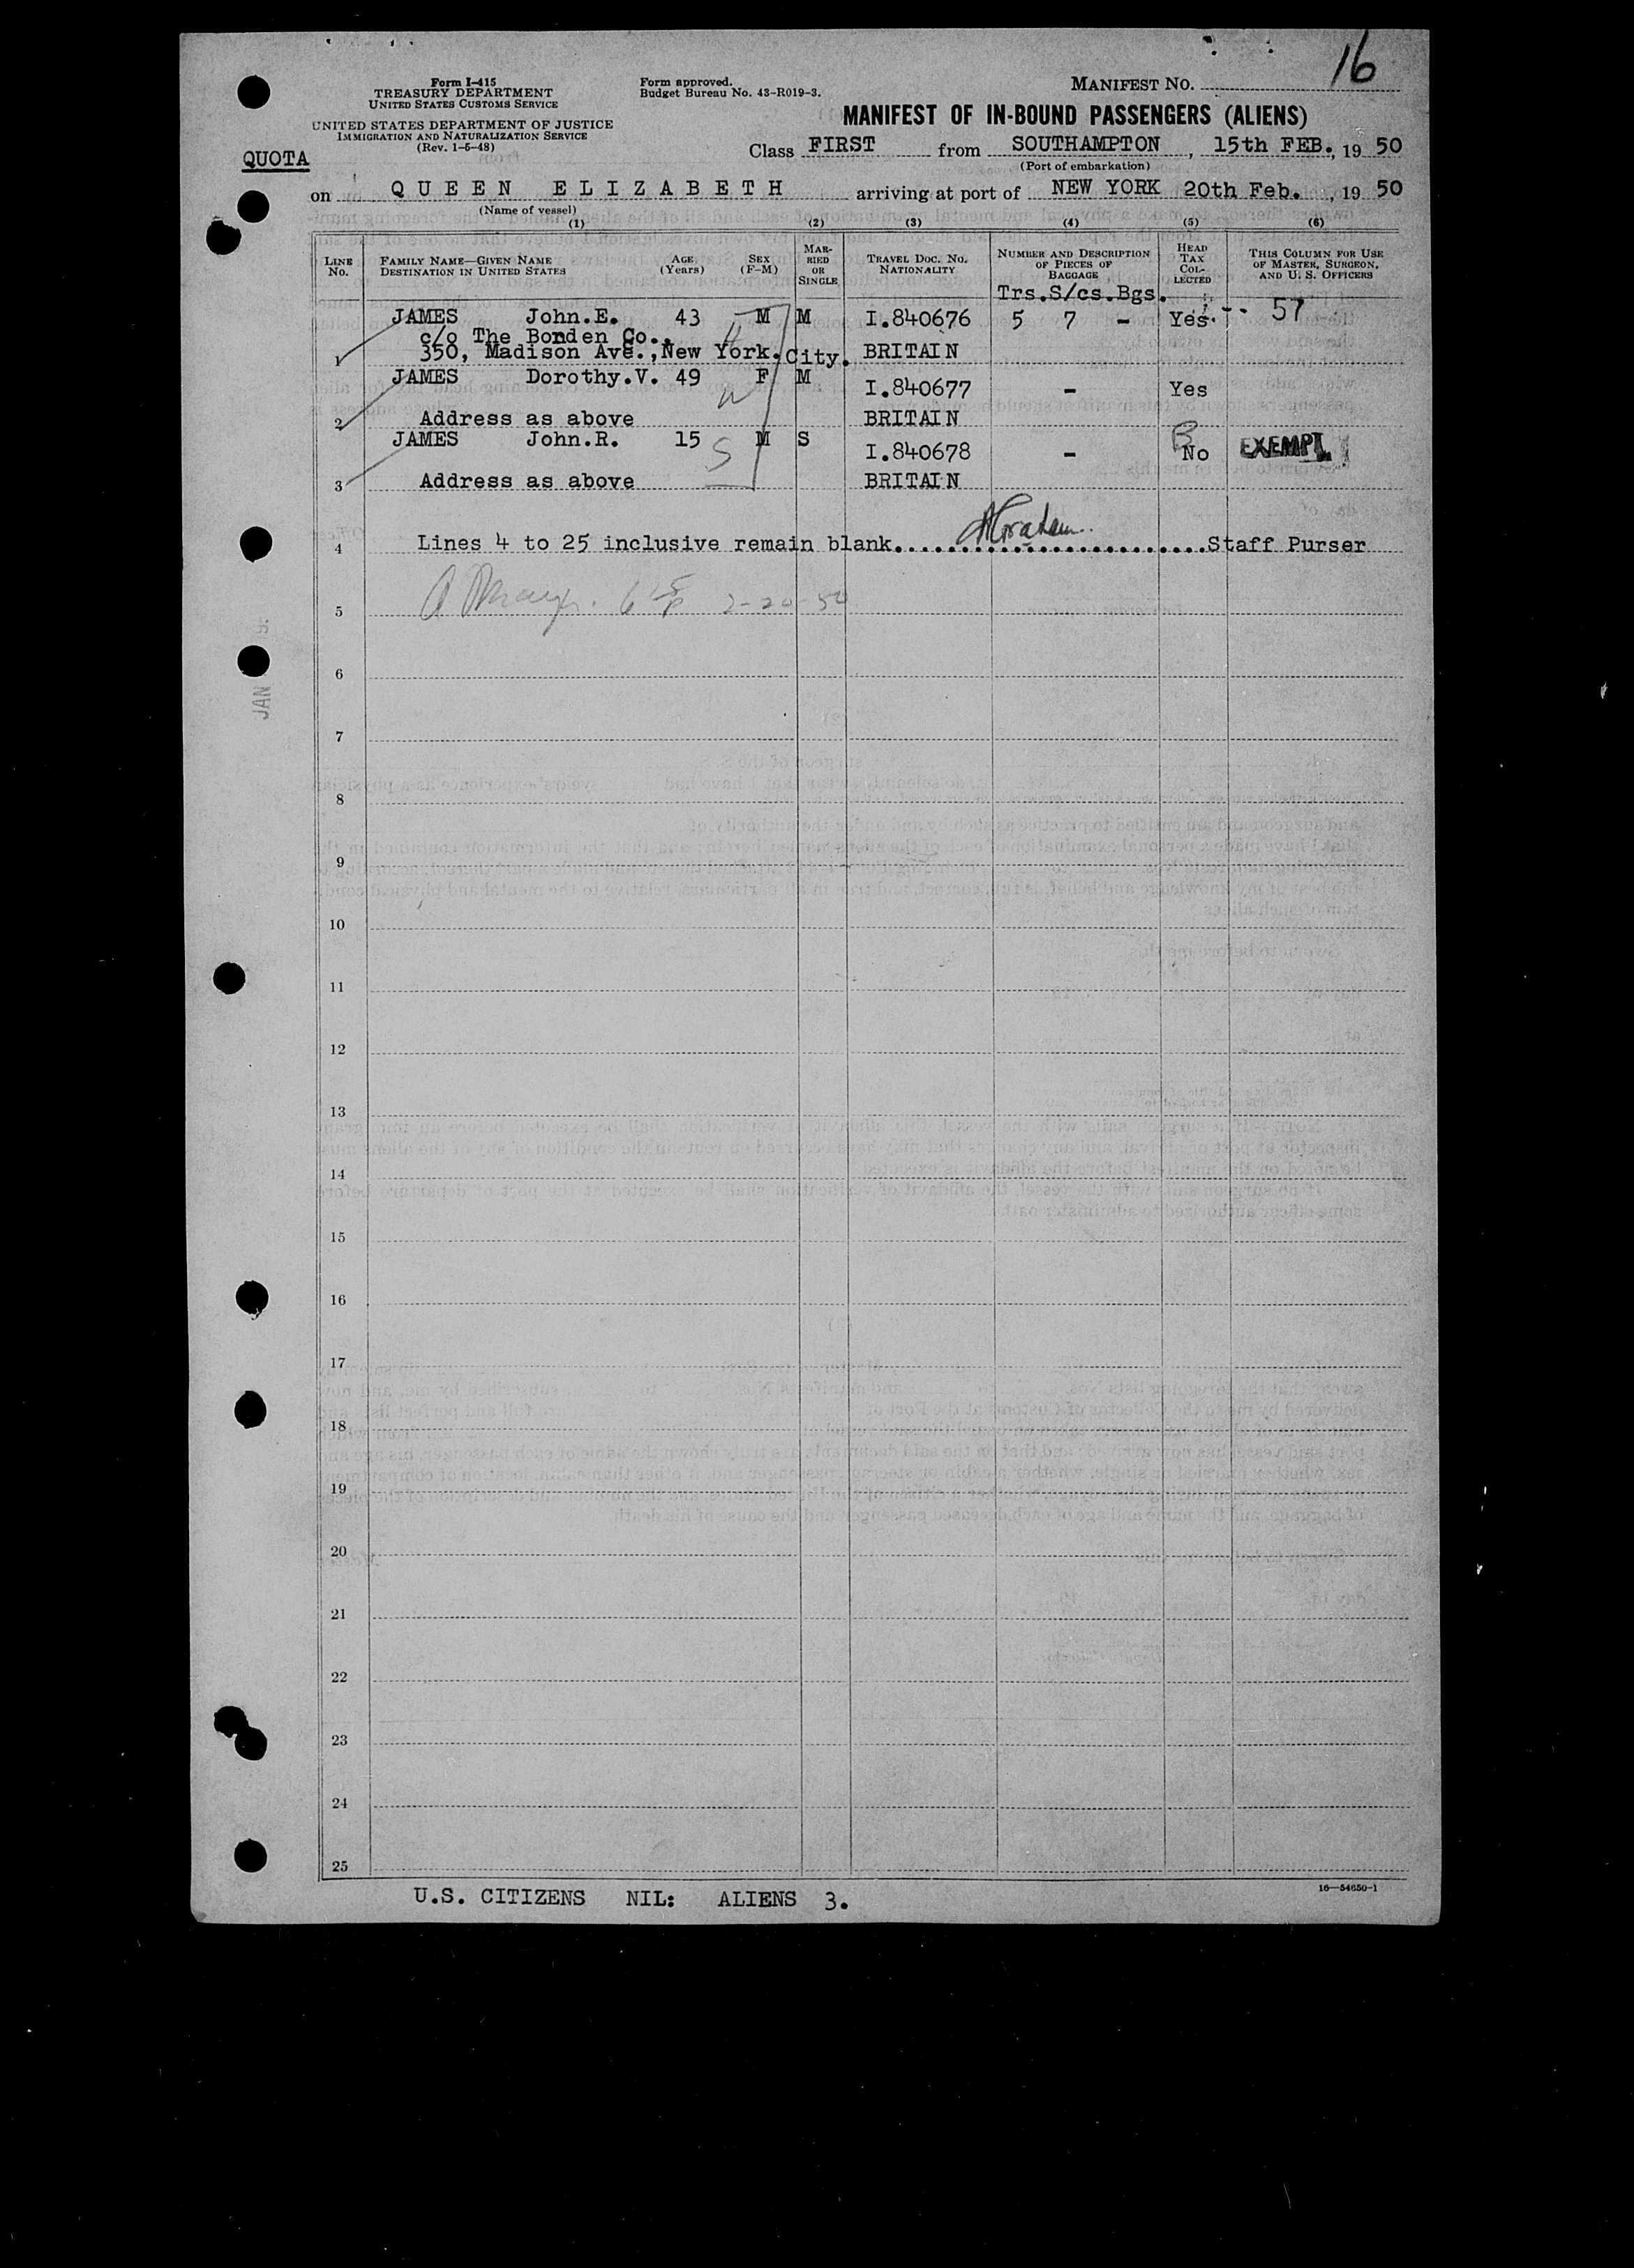 16
Form I-415
TREASURY DEPARTMENT
UNITED STATES CUSTOMS SERVICE
UNITED STATES DEPARTMENT OF JUSTICE
IMMIGRATION AND NATURALIZATION SERVICE
(Rev. 1-5-48)
Form approved.
Budget Bureau No. 43-R019-3.
MANIFEST NO.
MANIFEST OF IN-BOUND PASSENGERS (ALIENS)
QUOTA
Class FIRST from SOUTHAMPTON, 15th FEB., 19 50
(Port of embarkation)
on QUEEN ELIZABETH arriving at port of NEW YORK 20th Feb., 19 50
(Name of vessel)
(1) (2) (3) (4) (5) (6)
LINE NO. FAMILY NAME—GIVEN NAME DESTINATION IN UNITED STATES AGE (Years) SEX (F-M) MARRIED OR SINGLE TRAVEL DOC. NO. NATIONALITY NUMBER AND DESCRIPTION OF PIECES OF BAGGAGE HEAD TAX COLLECTED THIS COLUMN FOR USE OF MASTER, SURGEON, AND U. S. OFFICERS
Trs.S/cs.Bgs.
JAMES John.E. 43 M M I.840676 5 7 - Yes 57
c/o The Borden Co.,
1 350, Madison Ave.,New York.City. BRITAIN
JAMES Dorothy.V. 49 F M I.840677 - Yes
W
2 Address as above BRITAIN
JAMES John.R. 15 M S I.840678 - No EXEMPT
S
3 Address as above BRITAIN
4 Lines 4 to 25 inclusive remain blank. Staff Purser
5 2-20-50
6
7
8
9
10
11
12
13
14
15
16
17
18
19
20
21
22
23
24
25
U.S. CITIZENS NIL: ALIENS 3.
16—54650-1
JAN